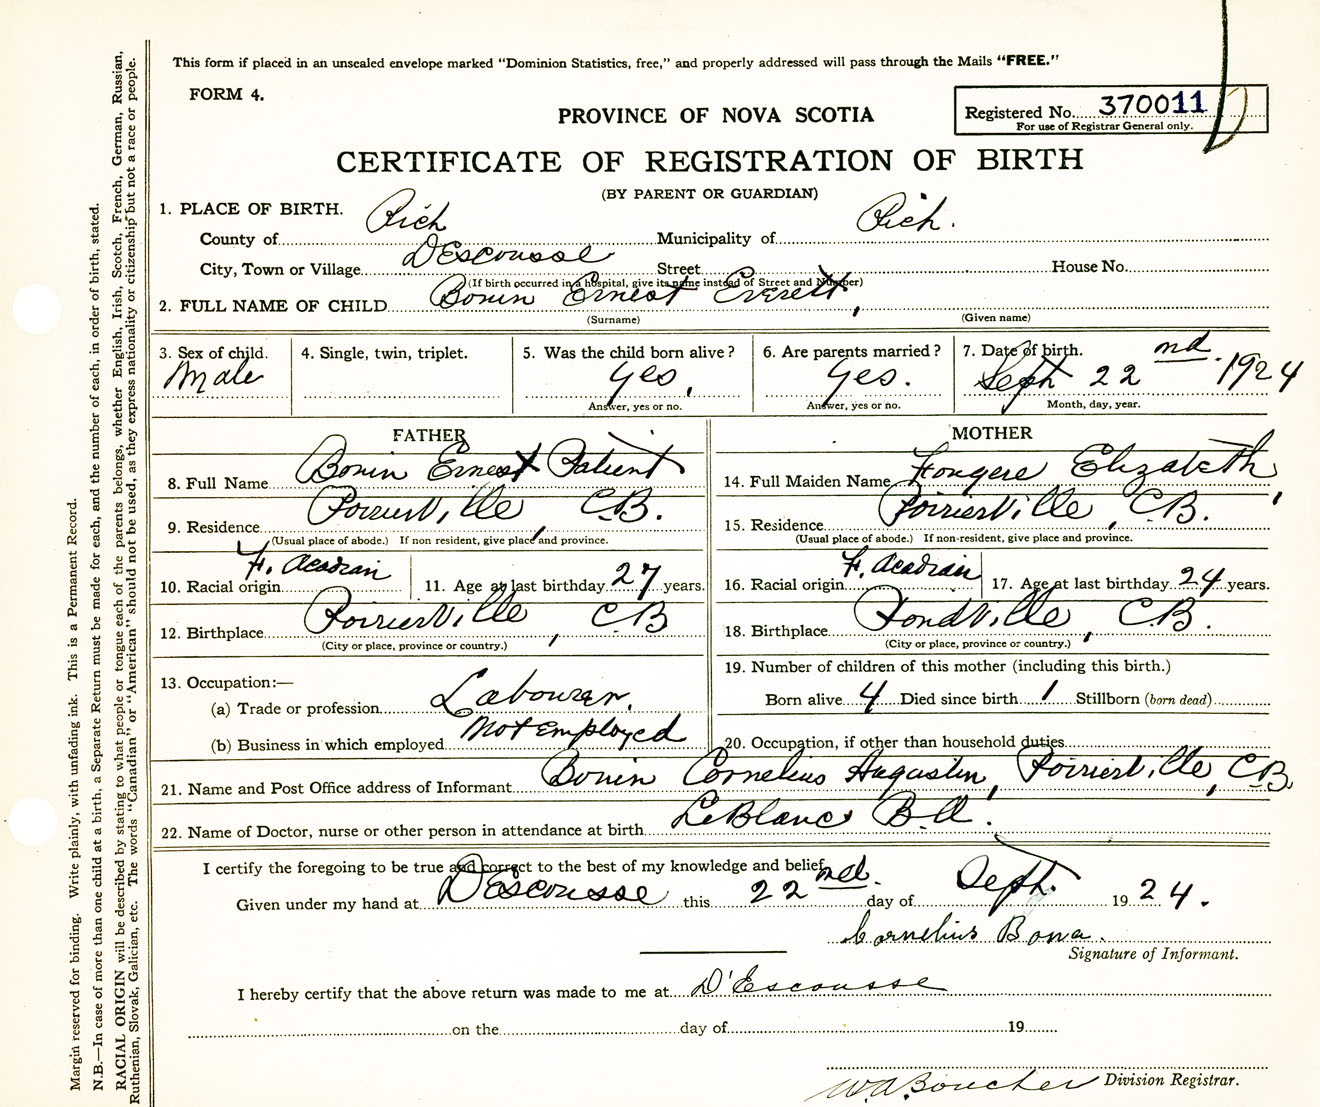 This form if placed in an unsealed envelope marked "Dominion Statistics, free," and properly addressed will pass through the Mails "FREE."
FORM 4.
PROVINCE OF NOVA SCOTIA
Registered No. 370011
For use of Registrar General only.
CERTIFICATE OF REGISTRATION OF BIRTH
(BY PARENT OR GUARDIAN)
1. PLACE OF BIRTH.
County of Rich Municipality of Rich.
City, Town or Village DEscousse Street House No.
(If birth occurred in a hospital, give its name instead of Street and Number)
2. FULL NAME OF CHILD Bonin Ernest Everett,
(Surname) (Given name)
3. Sex of child. Male
4. Single, twin, triplet.
5. Was the child born alive? Yes.
Answer, yes or no.
6. Are parents married? Yes.
Answer, yes or no.
7. Date of birth. Sept 22nd. 1924
Month, day, year.
FATHER
8. Full Name Bonin Ernest
9. Residence PoirierVille, C.B.
(Usual place of abode.) If non resident, give place and province.
10. Racial origin F. Acadian
11. Age at last birthday 27 years.
12. Birthplace PoirierVille, CB
(City or place, province or country.)
13. Occupation:—
(a) Trade or profession Labourer.
(b) Business in which employed Not Employed
MOTHER
14. Full Maiden Name Fougere Elizabeth,
15. Residence PoirierVille, C.B.
(Usual place of abode.) If non-resident, give place and province.
16. Racial origin F. Acadian
17. Age at last birthday 24 years.
18. Birthplace PondVille, C.B.
(City or place, province or country.)
19. Number of children of this mother (including this birth.)
Born alive 4 Died since birth 1 Stillborn (born dead)
20. Occupation, if other than household duties
21. Name and Post Office address of Informant Bonin Cornelius Augustin, PoirierVille, C.B.
22. Name of Doctor, nurse or other person in attendance at birth LeBlanc B.A.
I certify the foregoing to be true and correct to the best of my knowledge and belief.
Given under my hand at DEscousse this 22nd. day of Sept. 1924.
Cornelius Bona.
Signature of Informant.
I hereby certify that the above return was made to me at D'Escousse
on the day of 19
W.A. Boucher Division Registrar.
Margin reserved for binding. Write plainly, with unfading ink. This is a Permanent Record.
N.B.—In case of more than one child at a birth, a Separate Return must be made for each, and the number of each, in order of birth, stated.
RACIAL ORIGIN will be described by stating to what people or tongue each of the parents belongs, whether English, Irish, Scotch, French, German, Russian,
Ruthenian, Slovak, Galician, etc. The words "Canadian" or "American" should not be used, as they express nationality or citizenship but not a race or people.